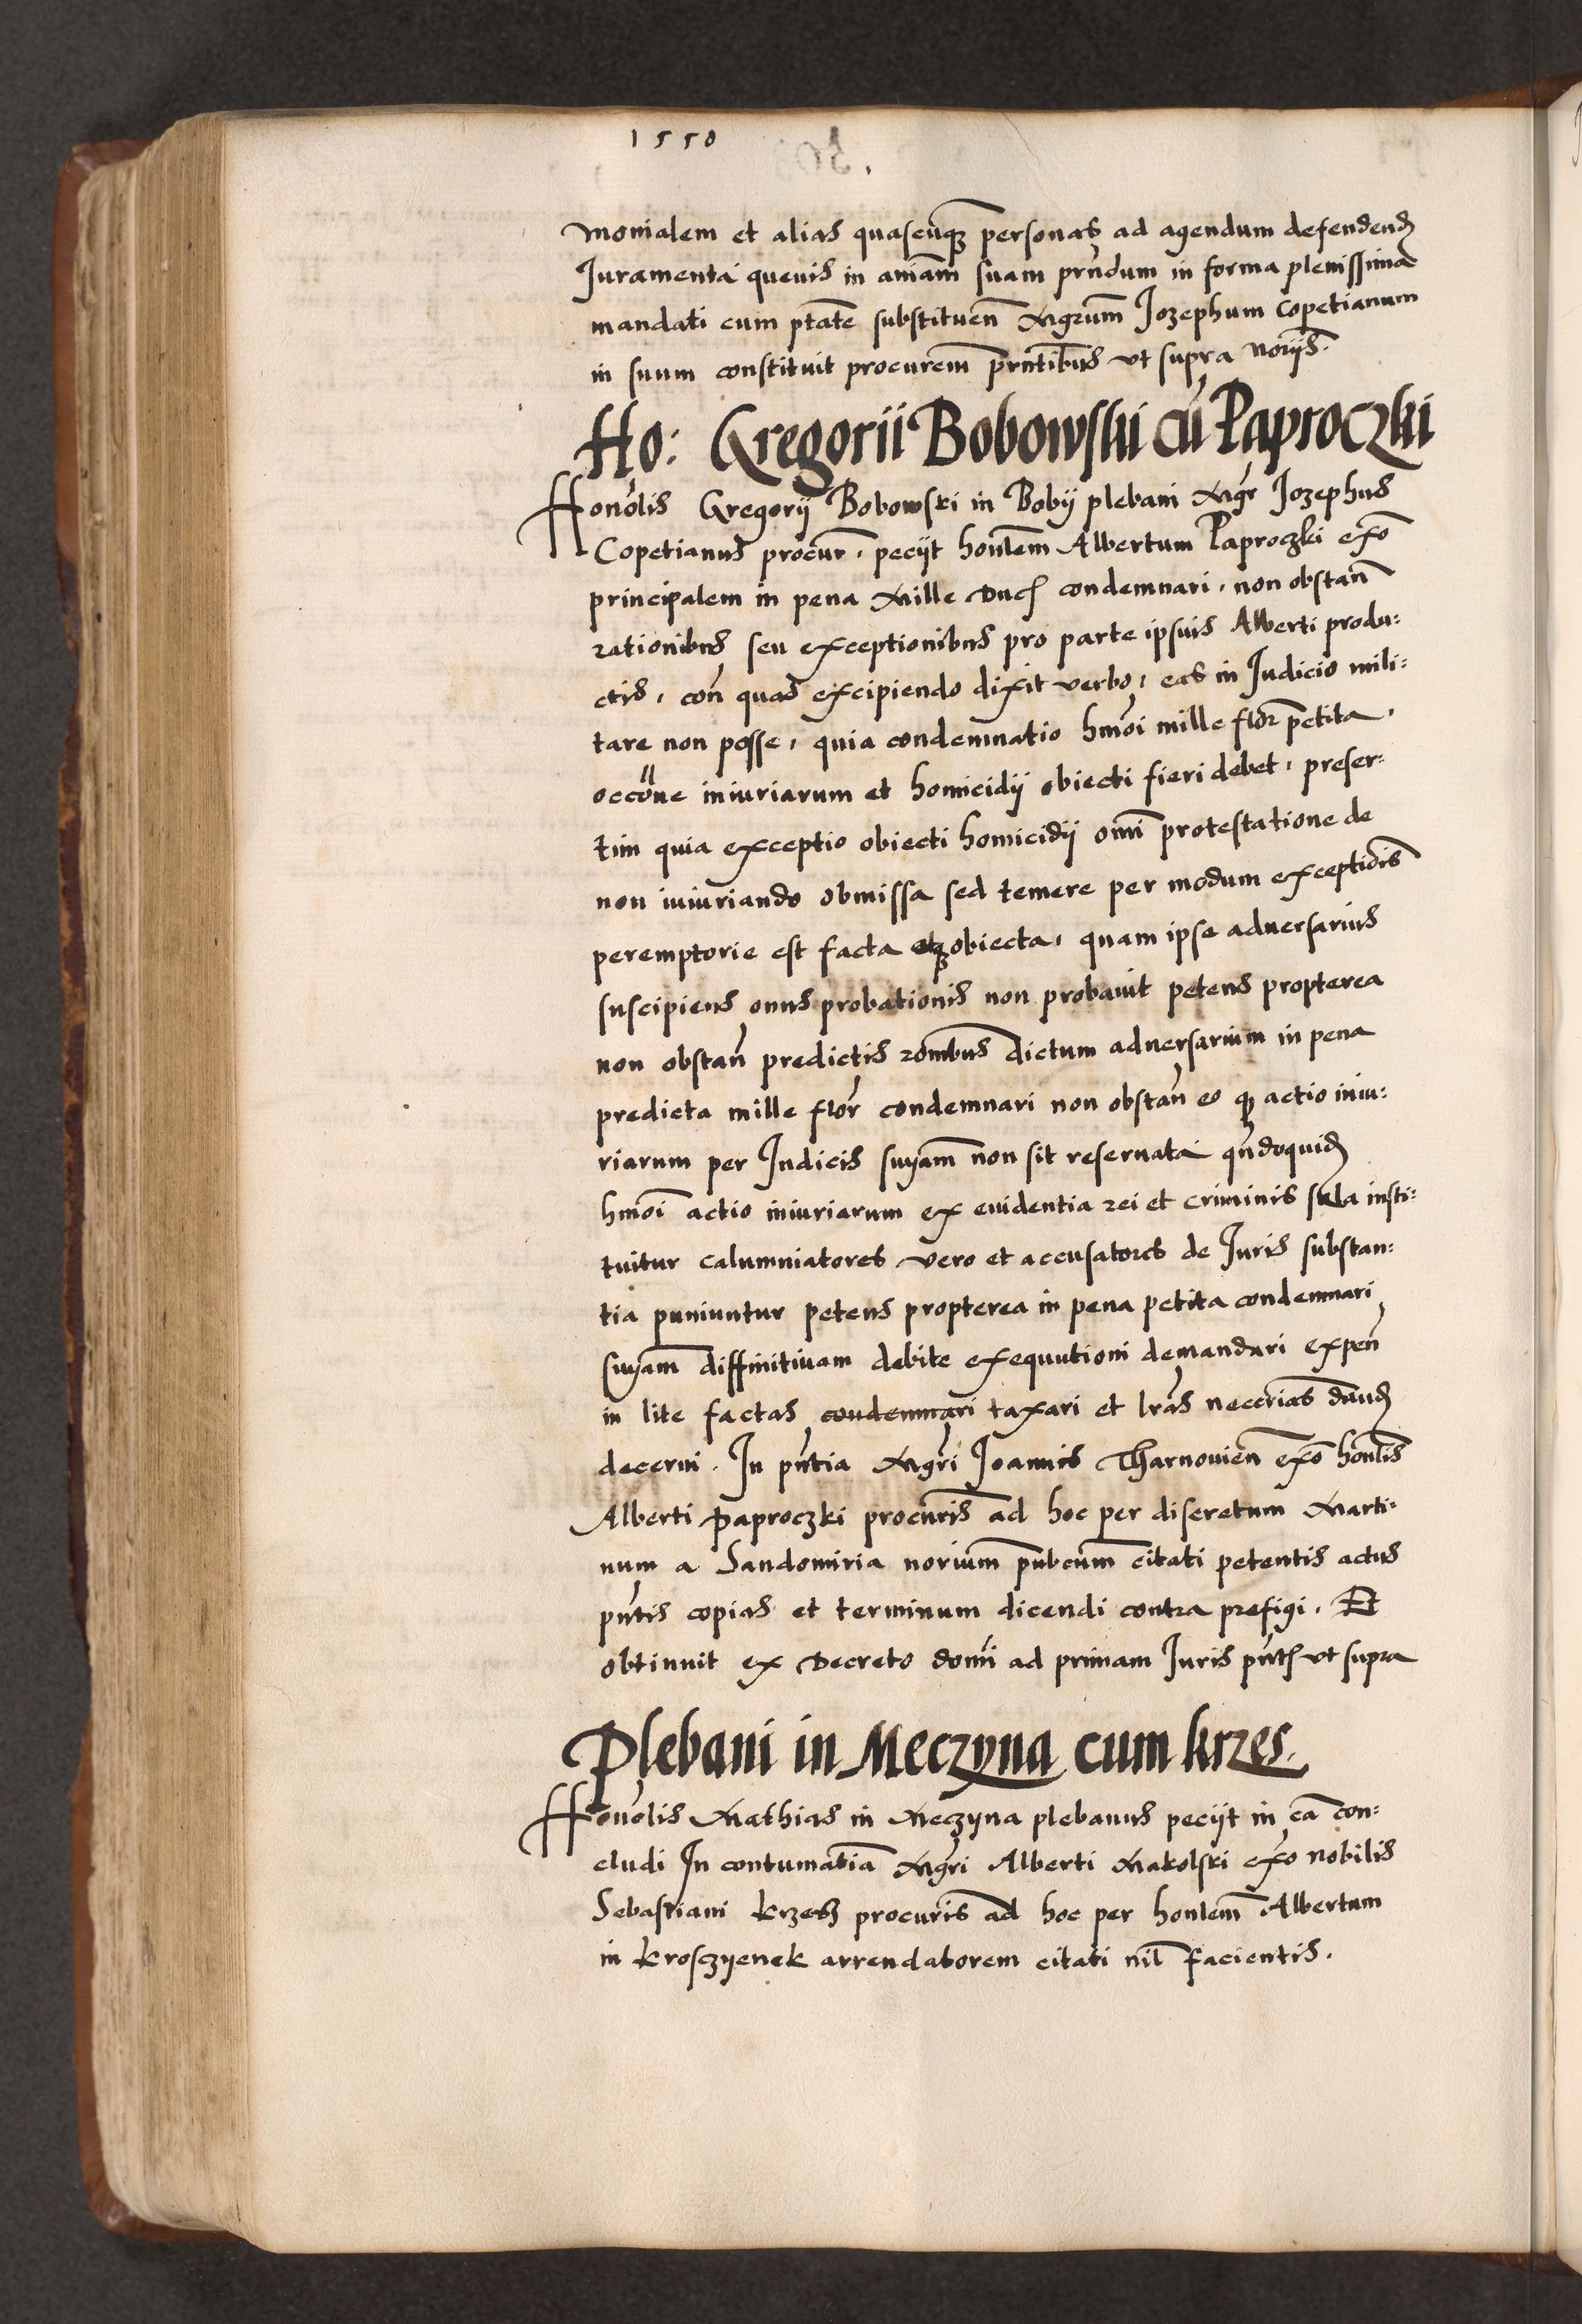 1550
monialem et alias quascūqȝ personas ad agendum defendend
Iuramenta quevis in aniām suam prñdum in forma plenissima
mandati cum ptāte substituen̄ Mgrūm Iozephum Copetianum
in suum constituit procurem̄ prntibus vt supra noriis.
Ho: Gregorii Bobowski cū Paproczki
Honolis Gregorij Bobowski in Bobij plebani Mgr Iozephus
Copetianus procur. pecijt honlem Albertum Paproczki exō
principalem in pena Mille Duc condemnari, non obstan̄
rationibus seu exceptionibus pro parte ipsius Alberti produ:
ctis, con̄ quas excipiendo dixit verbo, eas in Iudicio mili:
tare non posse, quia condemnatio hmōi mille flor petita,
occōne iniuriarum et homicidij obiecti fieri debet, preser:
tim quia exceptio obiecti homicidij omī protestatione de
non iniuriando obmissa sed temere per modum exceptiōis
peremptorie est facta etqȝ obiecta, quam ipse adversarius
suscipiens onus probationis non probauit petens propterea
non obstan̄ predictis rōnibus dictum adversarium in pena
predicta mille flor condemnari non obstan̄ eo qȝ actio iniu:
riarum per Iudicis suȳam non sit reseruata qñdoquid
hmōi actio iniuriarum ex euidentia rei et criminis sola insti:
tuitur calumniatores vero et accusatores de Iuris substan:
tia puniuntur petens propterea in pena petita condemnari
suȳam diffinitiuam debite exequutioni demandari expen̄
in lite factas condemnari taxari et lrās neccrias dand
decerni. In pn̄tia Mgri Ioannis Tharnouien̄ exō honlis
Alberti Paproczki procuris ad hoc per discretum Marti:
num a Sandomiria norium pubcum citati petentis actus
pn̄tis copias et terminum dicendi contra prefigi. Et
obtinuit ex Decreto domī ad primam Iuris pn̄t vt supra
Plebani in Meczyna cum krzes.
Honolis Mathias in Meczyna plebanus pecijt in cā con:
cludi In contumatiā Mgri Alberti Makolski exō nobilis
Sebastiani krzesz procuris ad hoc per honlem Albertum
in kroszijenek arrendatorem citati nil facientis.